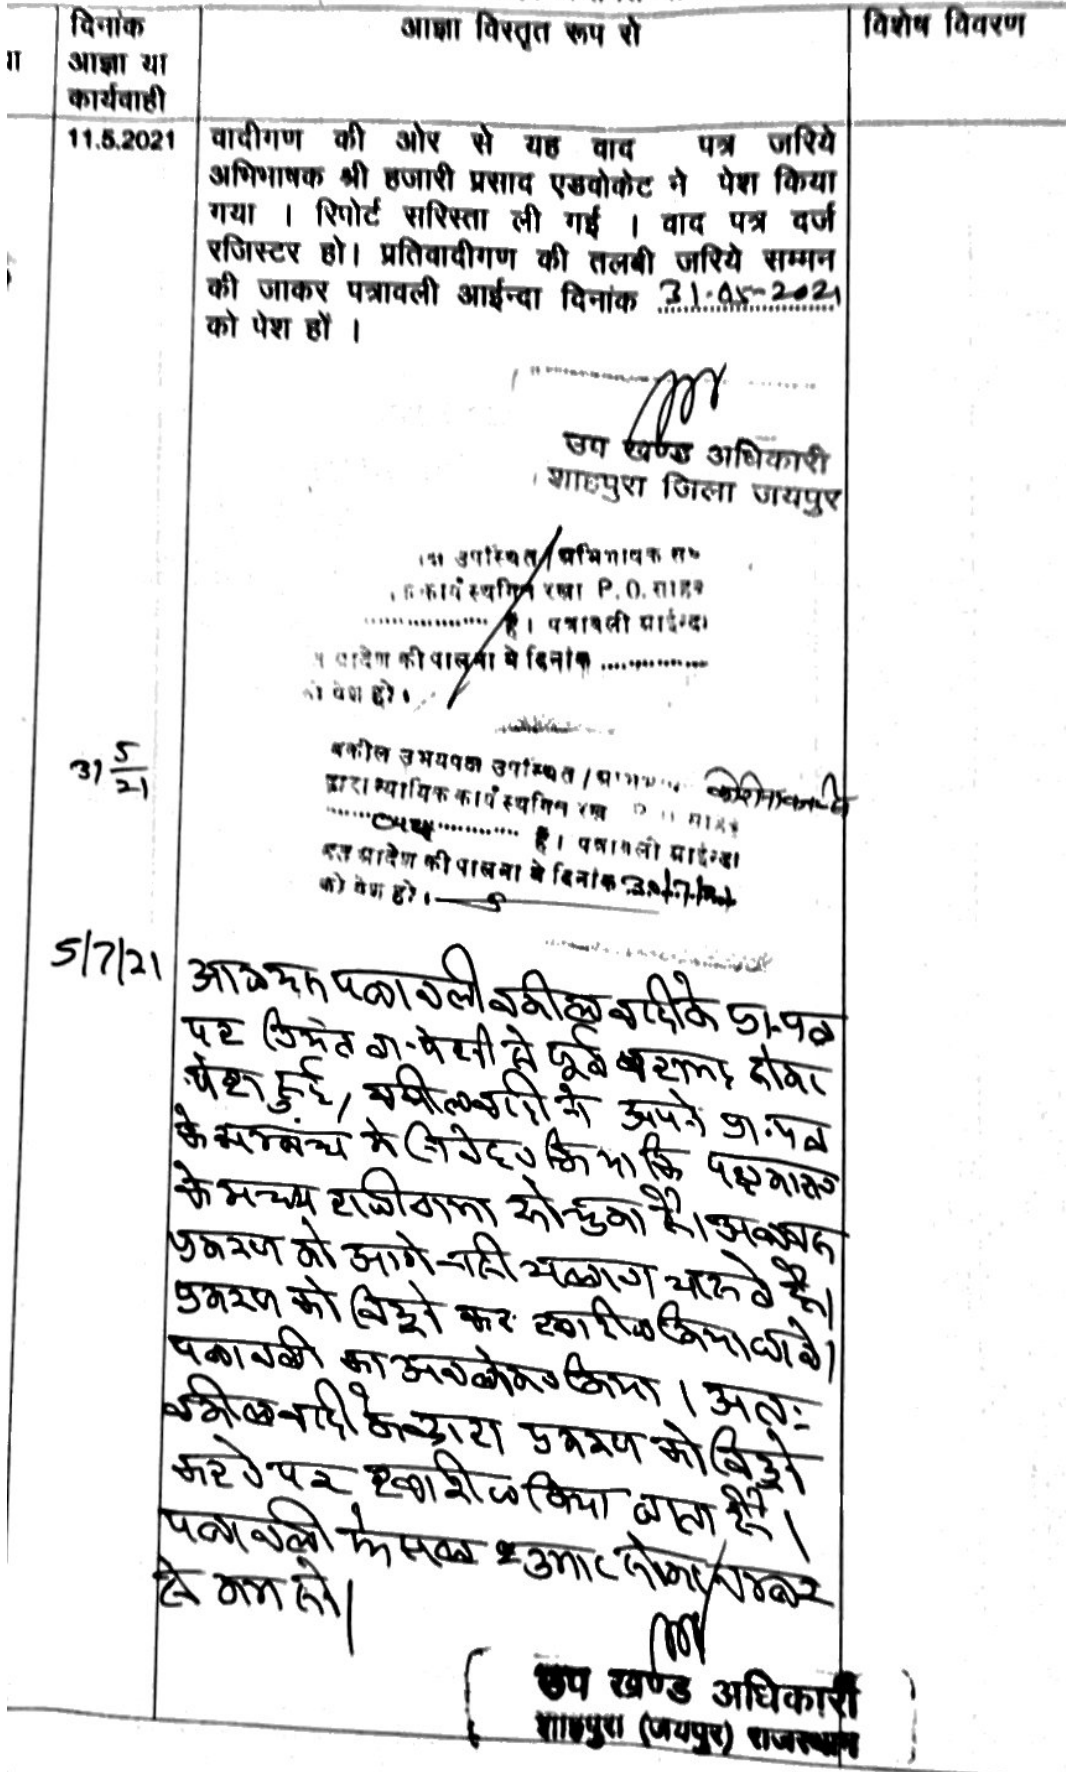 दिनांक
आज्ञा या
कार्यवाही
आज्ञा विस्तृत रूप से
विशेष विवरण
11.5.2021
वादीगण की ओर से यह वाद पत्र जरिये
अभिभाषक श्री हजारी प्रसाद एडवोकेट ने पेश किया
गया । रिपोर्ट सरिस्ता ली गई । वाद पत्र दर्ज
रजिस्टर हो। प्रतिवादीगण की तलबी जरिये सम्मन
की जाकर पत्रावली आईन्दा दिनांक 31-05-2021
को पेश हों ।
उप खण्ड अधिकारी
शाहपुरा जिला जयपुर
उपस्थित/अभिभाषक
कार्य स्थगित रखा P.O. साहब
है। पत्रावली आईन्दा
आदेश की पालना में दिनांक
को पेश हो।
31 5/21
वकील उभयपक्ष उपस्थित/
द्वारा न्यायिक कार्य स्थगित रखा
है। पत्रावली आईन्दा
आदेश की पालना में दिनांक
को पेश हो।
5/7/21
आज यह पत्रावली वकील वादी के प्रा.पत्र
पर नियत ता-पेशी से पूर्व बरामद होकर
पेश हुई, वकील वादी ने अपने प्रा.पत्र
के सम्बंध में निवेदन किया कि पक्षकारान
के मध्य राजीनामा हो चुका है। अब वह
प्रकरण को आगे नहीं चलाना चाहते है।
प्रकरण को विड्रो कर खारीज किया जावे।
पत्रावली का अवलोकन किया । अतः
वकील वादी के द्वारा प्रकरण को विड्रो
करने पर खारीज किया जाता है।
पत्रावली फैसल शुमार होकर नम्बर
से कम हो।
उप खण्ड अधिकारी
शाहपुरा (जयपुर) राजस्थान